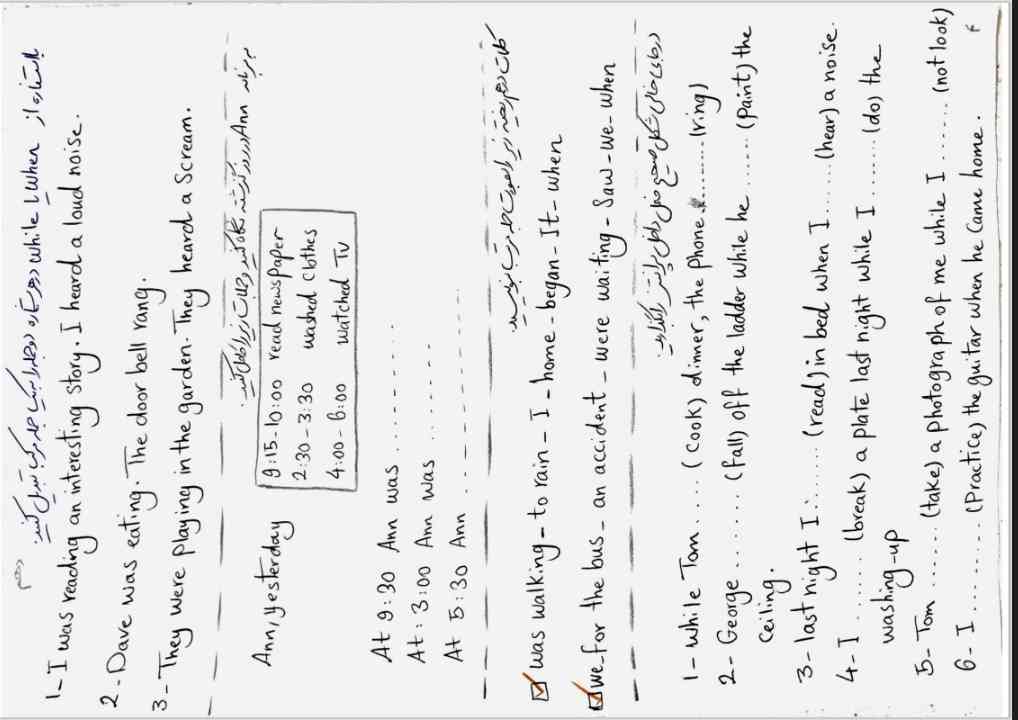 با استفاده از when یا while دو جمله را به یک جمله ترکیبی تبدیل کنید.
1- I was reading an interesting story. I heard a loud noise.
2- Dave was eating. The door bell rang.
3- They were playing in the garden. They heard a scream.
به برنامه Ann در روز گذشته نگاه کنید و جملات زیر را کامل کنید.
Ann, yesterday
9:15-10:00 read newspaper
2:30-3:30 washed clothes
4:00-6:00 watched Tv
At 9:30 Ann was ..........
At: 3:00 Ann was .........
At 5:30 Ann ..............
کلمات درهم ریخته زیر را بصورت جمله مرتب بنویسید.
was walking - to rain - I - home - began - It - when
we - for the bus - an accident - were waiting - saw - we - when
در جای خالی شکل صحیح فعل داخل پرانتز را بگذارید.
1- while Tom .... (cook) dinner, the phone ........ (ring)
2- George ...... (fall) off the ladder while he ...... (paint) the
ceiling.
3- last night I ....... (read) in bed when I ...... (hear) a noise.
4- I ....... (break) a plate last night while I ....... (do) the
washing-up
5- Tom ....... (take) a photograph of me while I ....... (not look)
6- I ......... (practice) the guitar when he came home.
۴